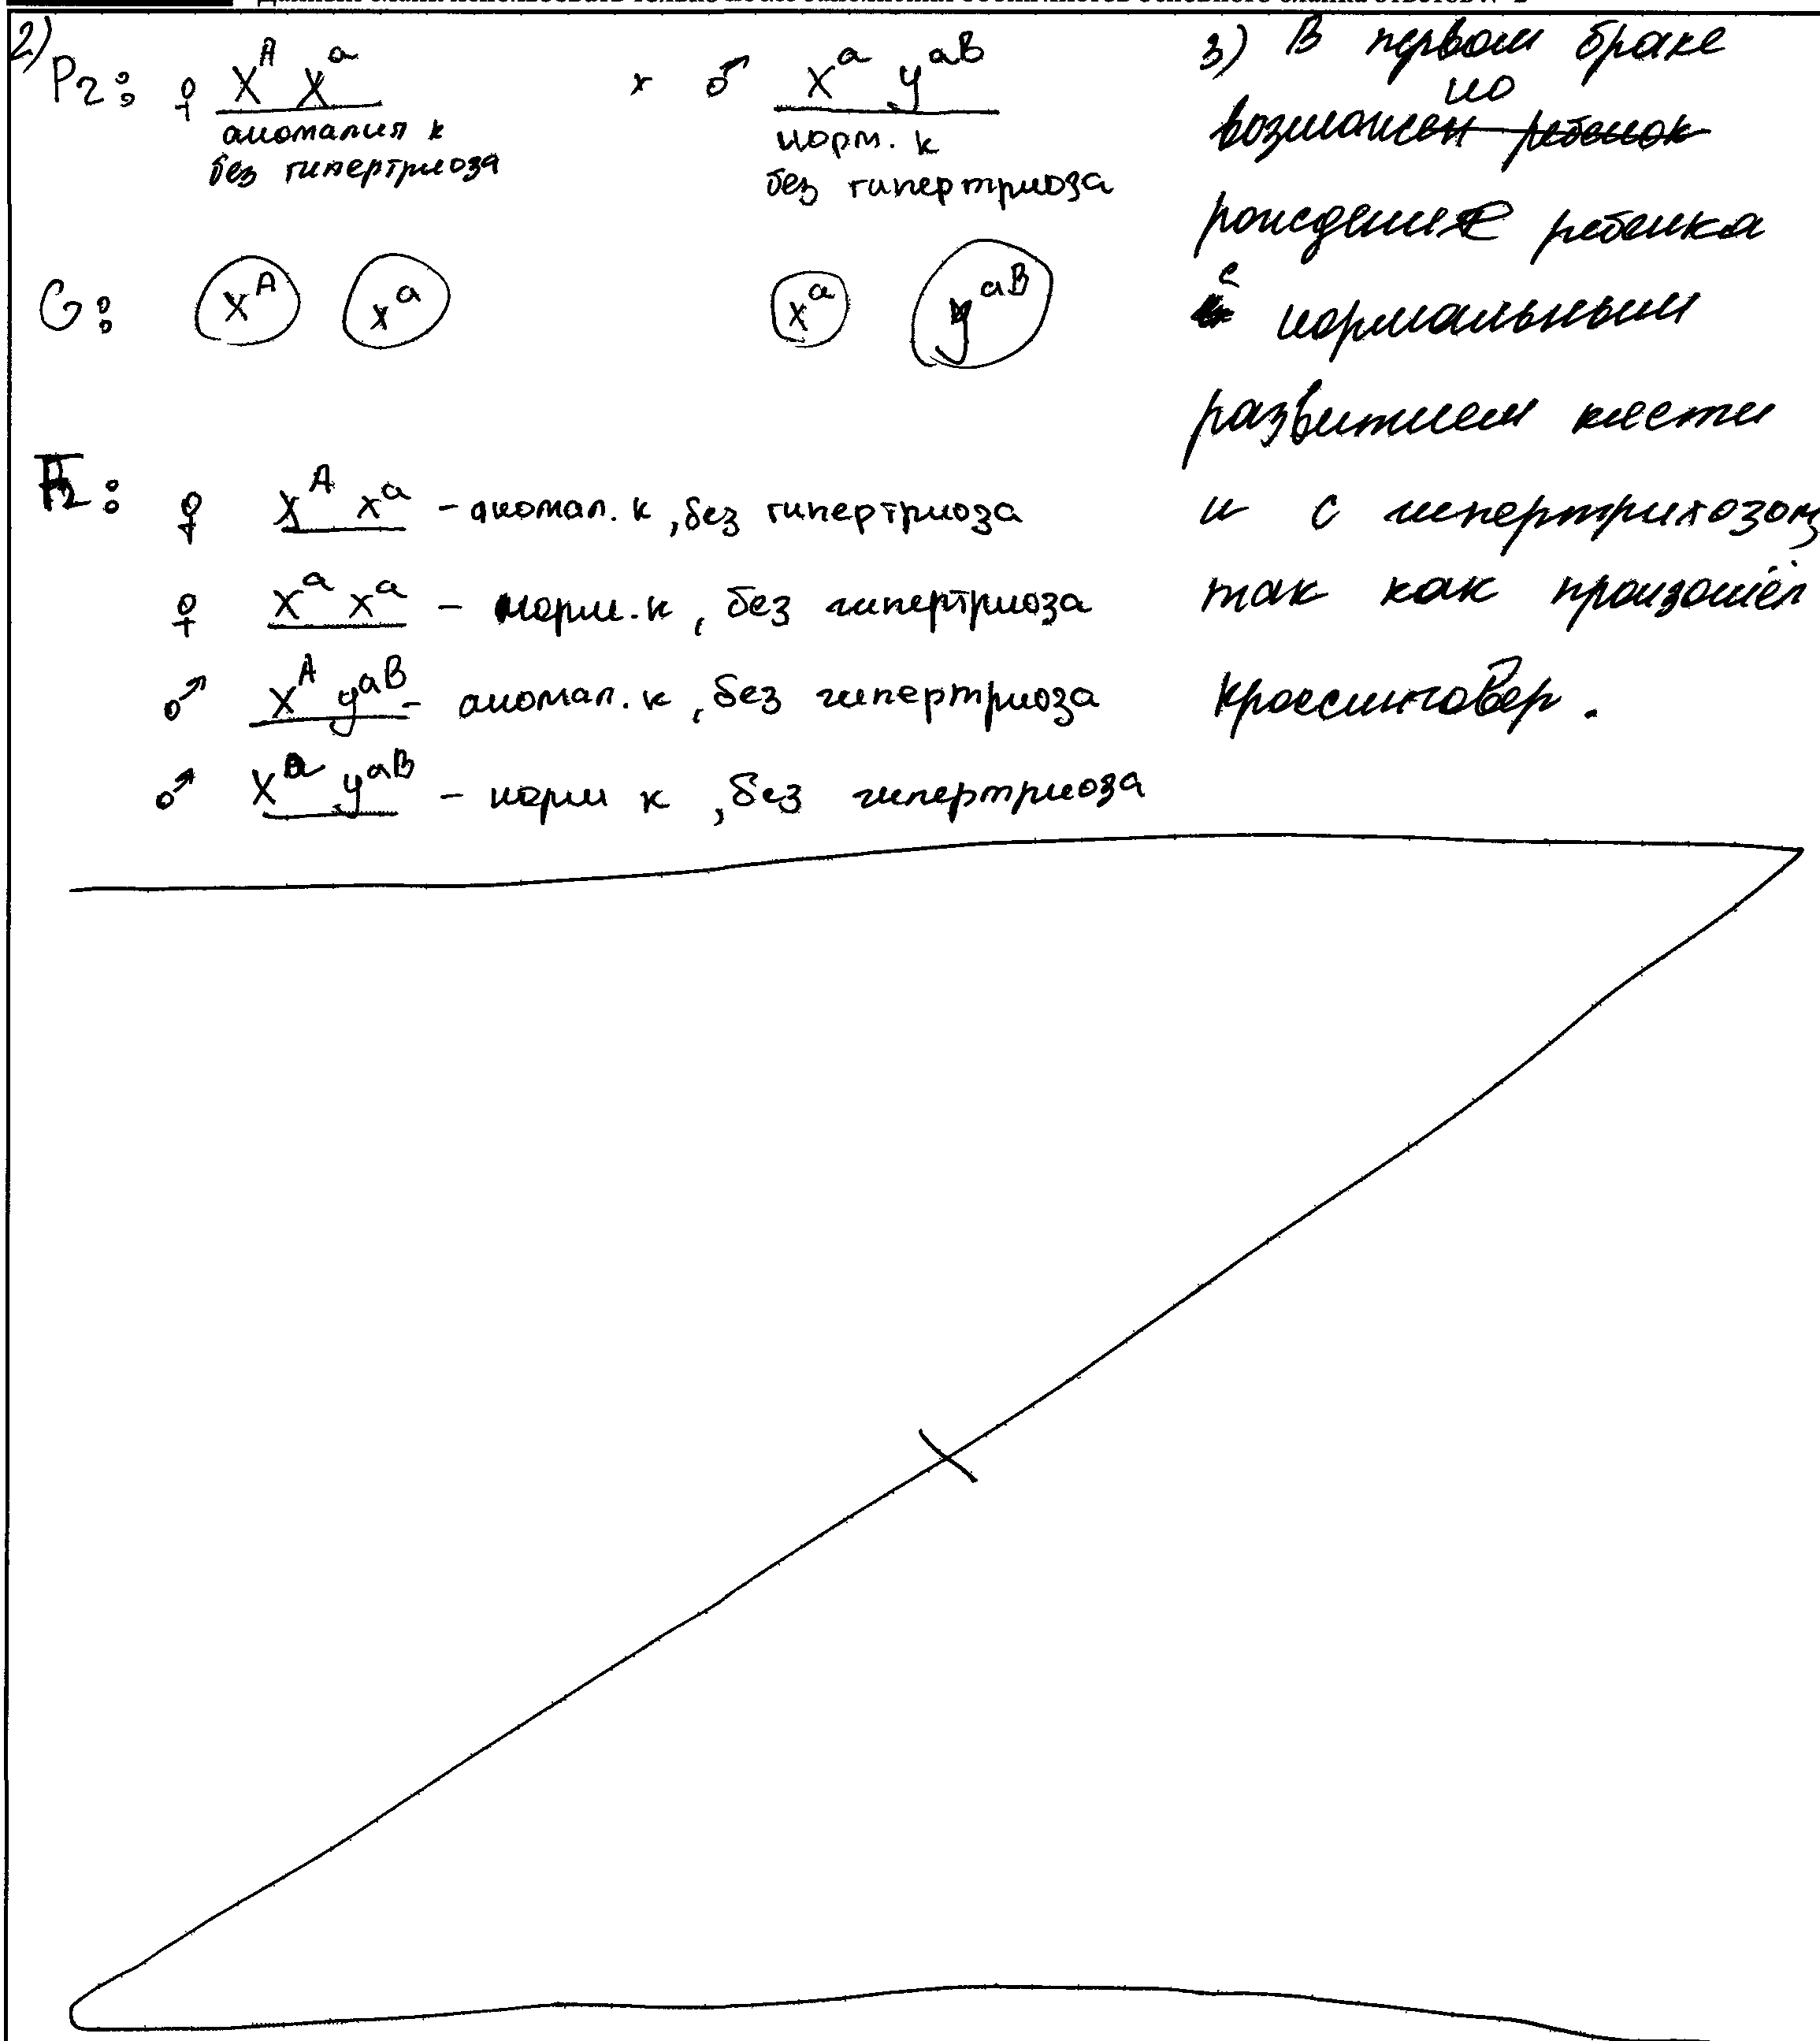 2) P2: ♀ X^A X^a x ♂ X^a y^aB
аномалия к норм. к
без гипертриоза без гипертриоза
G: X^A X^a X^a y^aB
F2: ♀ X^A X^a - аномал. к, без гипертриоза
♀ X^a X^a - норм. к, без гипертриоза
♂ X^A y^aB - аномал. к, без гипертриоза
♂ X^a y^aB - норм к, без гипертриоза
3) В первом браке
возможно
рождение ребенка
с нормальным
развитием кисти
и с гипертрихозом,
так как произошёл
кроссинговер.